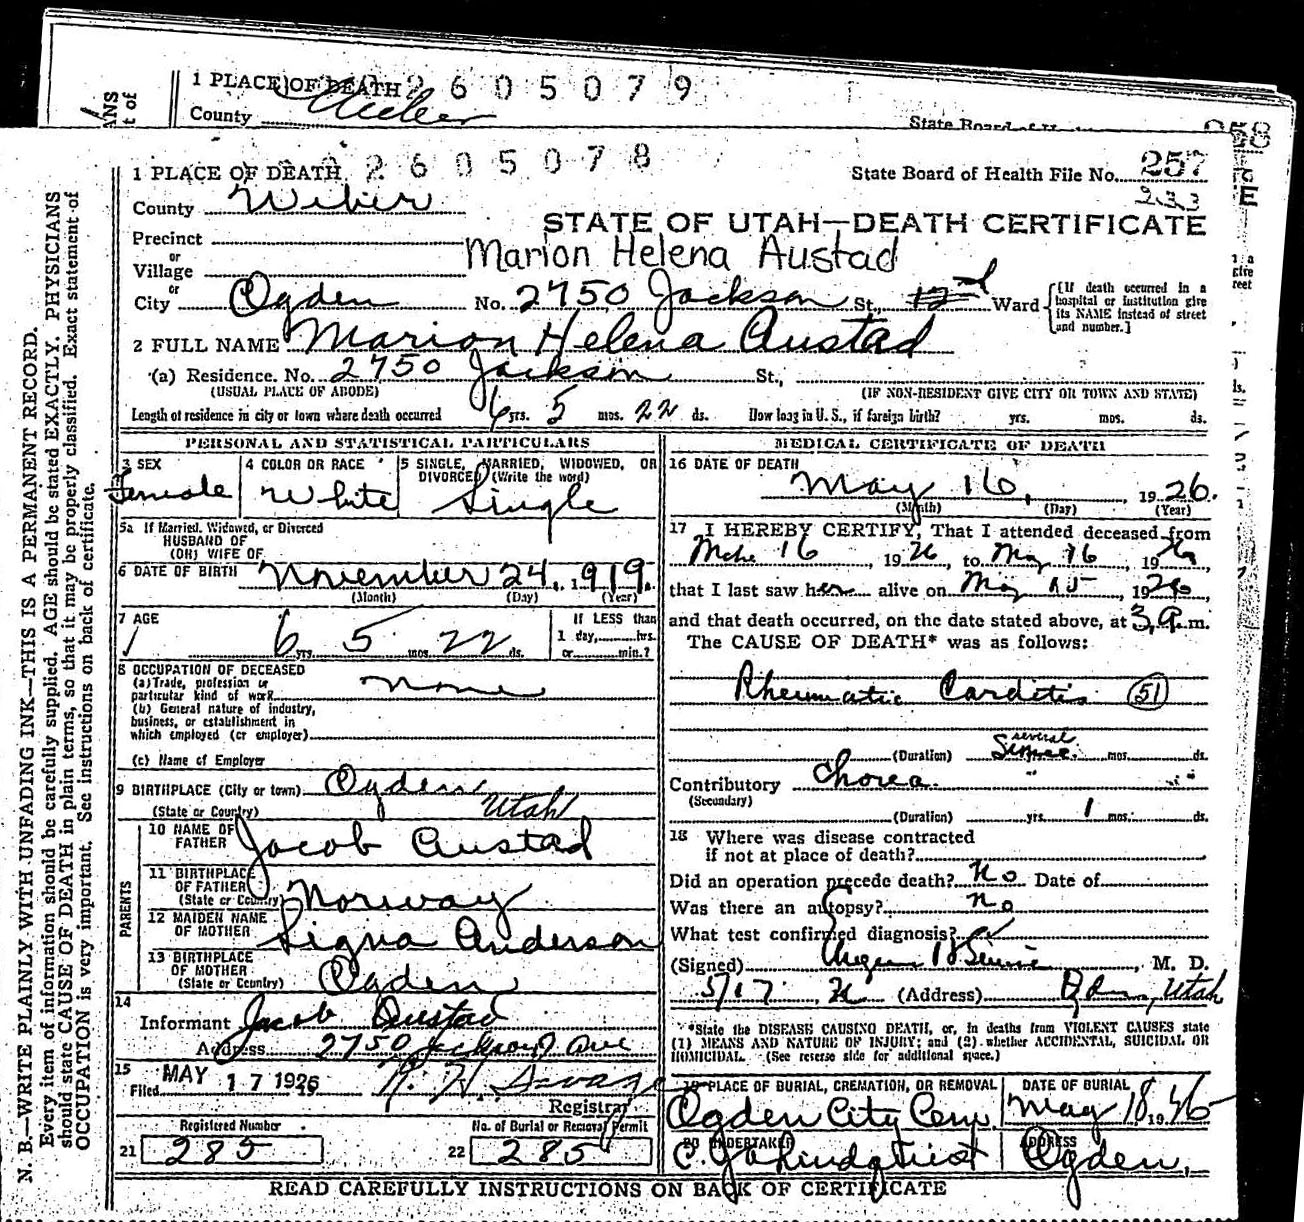 1 PLACE OF DEATH 2605079
County Weber
State Board of H
258
1 PLACE OF DEATH 2605078
State Board of Health File No. 257
233
County Weber
STATE OF UTAH—DEATH CERTIFICATE
Precinct
or
Village
Marion Helena Austad
or
City Ogden No. 2750 Jackson St., 12 Ward
[If death occurred in a hospital or institution give its NAME instead of street and number.]
2 FULL NAME Marion Helena Austad
(a) Residence. No. 2750 Jackson St.,
(USUAL PLACE OF ABODE) (IF NON-RESIDENT GIVE CITY OR TOWN AND STATE)
Length of residence in city or town where death occurred 6 yrs. 5 mos. 22 ds. How long in U. S., if foreign birth? yrs. mos. ds.
PERSONAL AND STATISTICAL PARTICULARS
3 SEX Female
4 COLOR OR RACE White
5 SINGLE, MARRIED, WIDOWED, OR DIVORCED (Write the word) Single
5a If Married, Widowed, or Divorced
HUSBAND OF
(OR) WIFE OF
6 DATE OF BIRTH November 24, 1919.
(Month) (Day) (Year)
7 AGE 6 yrs. 5 mos. 22 ds.
If LESS than
1 day, hrs.
or min.?
8 OCCUPATION OF DECEASED
(a) Trade, profession or
particular kind of work none
(b) General nature of industry,
business, or establishment in
which employed (or employer)
(c) Name of Employer
9 BIRTHPLACE (City or town) Ogden
(State or Country) Utah
PARENTS
10 NAME OF FATHER Jacob Austad
11 BIRTHPLACE OF FATHER (State or Country) Norway
12 MAIDEN NAME OF MOTHER Signa Anderson
13 BIRTHPLACE OF MOTHER (State or Country) Ogden
14
Informant Jacob Austad
Address 2750 Jackson Ave
15
Filed MAY 17 1926
Registrar
Registered Number
21 285
No. of Burial or Removal Permit
22 285
MEDICAL CERTIFICATE OF DEATH
16 DATE OF DEATH
May 16, 1926.
(Month) (Day) (Year)
17 I HEREBY CERTIFY, That I attended deceased from
Mch 16, 1926, to May 16, 1926
that I last saw her alive on May 15, 1926,
and that death occurred, on the date stated above, at 3 A.m.
The CAUSE OF DEATH* was as follows:
Rheumatic Carditis (51)
several
(Duration) mos. ds.
Contributory Chorea
(Secondary)
(Duration) yrs. 1 mos. ds.
18 Where was disease contracted
if not at place of death?
Did an operation precede death? No Date of
Was there an autopsy? no
What test confirmed diagnosis?
(Signed) , M. D.
5/17 26 (Address) Ogden, Utah
*State the DISEASE CAUSING DEATH, or, in deaths from VIOLENT CAUSES state
(1) MEANS AND NATURE OF INJURY; and (2) whether ACCIDENTAL, SUICIDAL OR
HOMICIDAL. (See reverse side for additional space.)
19 PLACE OF BURIAL, CREMATION, OR REMOVAL
Ogden City Cem
DATE OF BURIAL
May 18, 19
20 UNDERTAKER
C. J. A. Lindquist
ADDRESS
Ogden,
READ CAREFULLY INSTRUCTIONS ON BACK OF CERTIFICATE
N. B.—WRITE PLAINLY WITH UNFADING INK—THIS IS A PERMANENT RECORD.
Every item of information should be carefully supplied. AGE should be stated EXACTLY. PHYSICIANS
should state CAUSE OF DEATH in plain terms, so that it may be properly classified. Exact statement of
OCCUPATION is very important. See instructions on back of certificate.